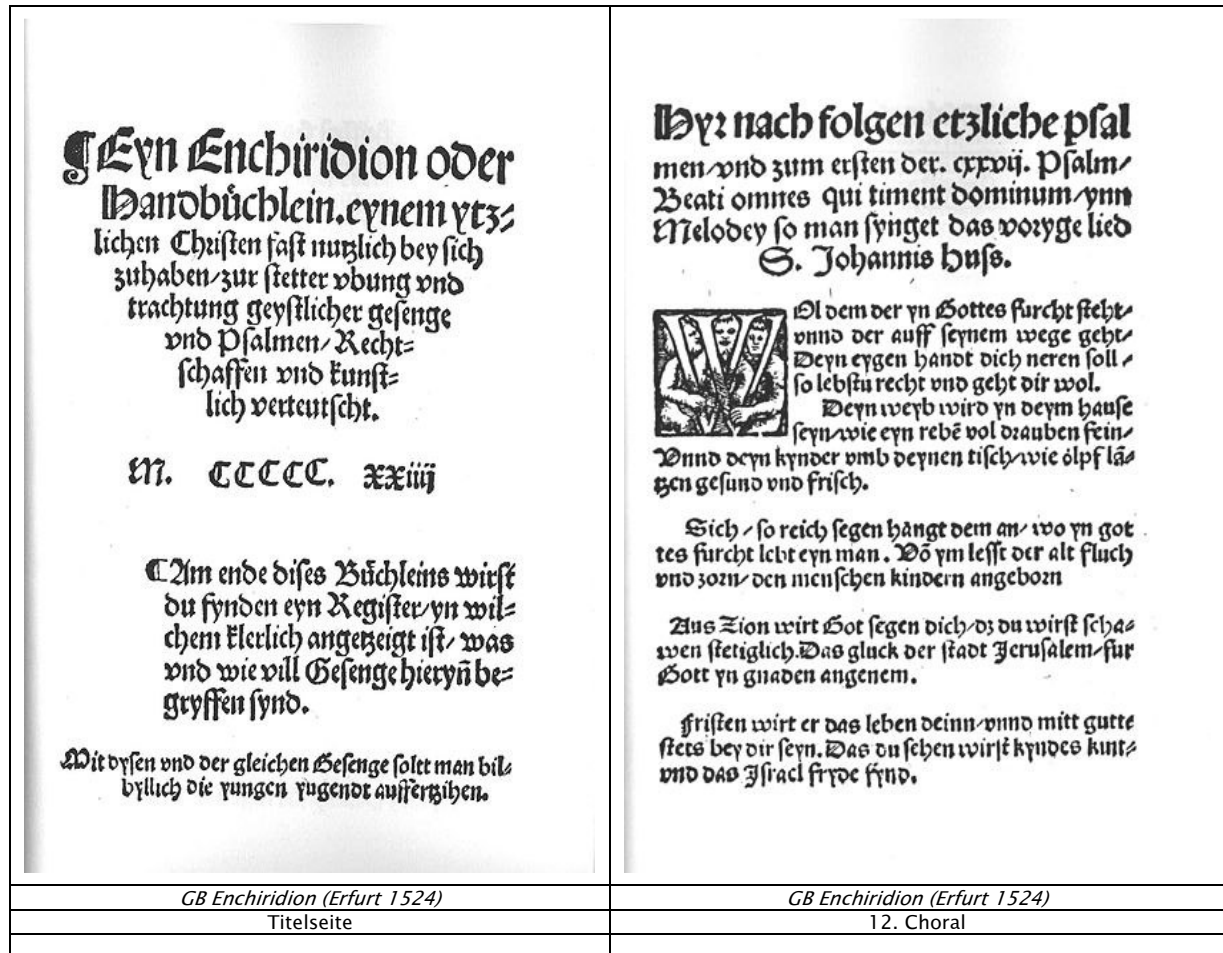 ¶ Eyn Enchiridion oder
Handbüchlein. eynem ytz⸗
lichen Christen fast nutzlich bey sich
zuhaben/ zur stetter vbung vnd
trachtung geystlicher gesenge
vnd Psalmen/ Recht⸗
schaffen vnd kunst⸗
lich verteutscht.
M. CCCCC. xxiiij
¶ Am ende dises Büchleins wirst
du fynden eyn Register/ yn wil⸗
chem klerlich angetzeigt ist/ was
vnd wie vill Gesenge hieryñ be⸗
gryffen synd.
Mit dysen vnd der gleichen Gesenge soltt man bil⸗
byllich die yungen yugendt auffertzihen.
GB Enchiridion (Erfurt 1524)
Titelseite
Hyr nach folgen etzliche psal
men/ vnd zum ersten der. cxxvij. Psalm/
Beati omnes qui timent dominum/ ynn
Melodey so man synget das voryge lied
S. Johannis Huss.
WOl dem der yn Gottes furcht steht/
vnnd der auff seynem wege geht/
Deyn eygen handt dich neren soll/
so lebstu recht vnd geht dir wol.
Deyn weyb wird yn deym hause
seyn/ wie eyn rebē vol drauben fein/
Vnnd deyn kynder vmb deynen tisch/ wie ölpflā⸗
tzen gesund vnd frisch.
Sich/ so reich segen hangt dem an/ wo yn got
tes furcht lebt eyn man. Võ ym lesst der alt fluch
vnd zorn/ den menschen kindern angeborn
Aus Zion wirt Got segen dich/ dz du wirst scha⸗
wen stetiglich. Das gluck der stadt Jerusalem/ fur
Gott yn gnaden angenem.
Fristen wirt er das leben deinn/ vnnd mitt gutte
stets bey dir seyn. Das du sehen wirst kyndes kint⸗
vnd das Israel fryde fynd.
GB Enchiridion (Erfurt 1524)
12. Choral